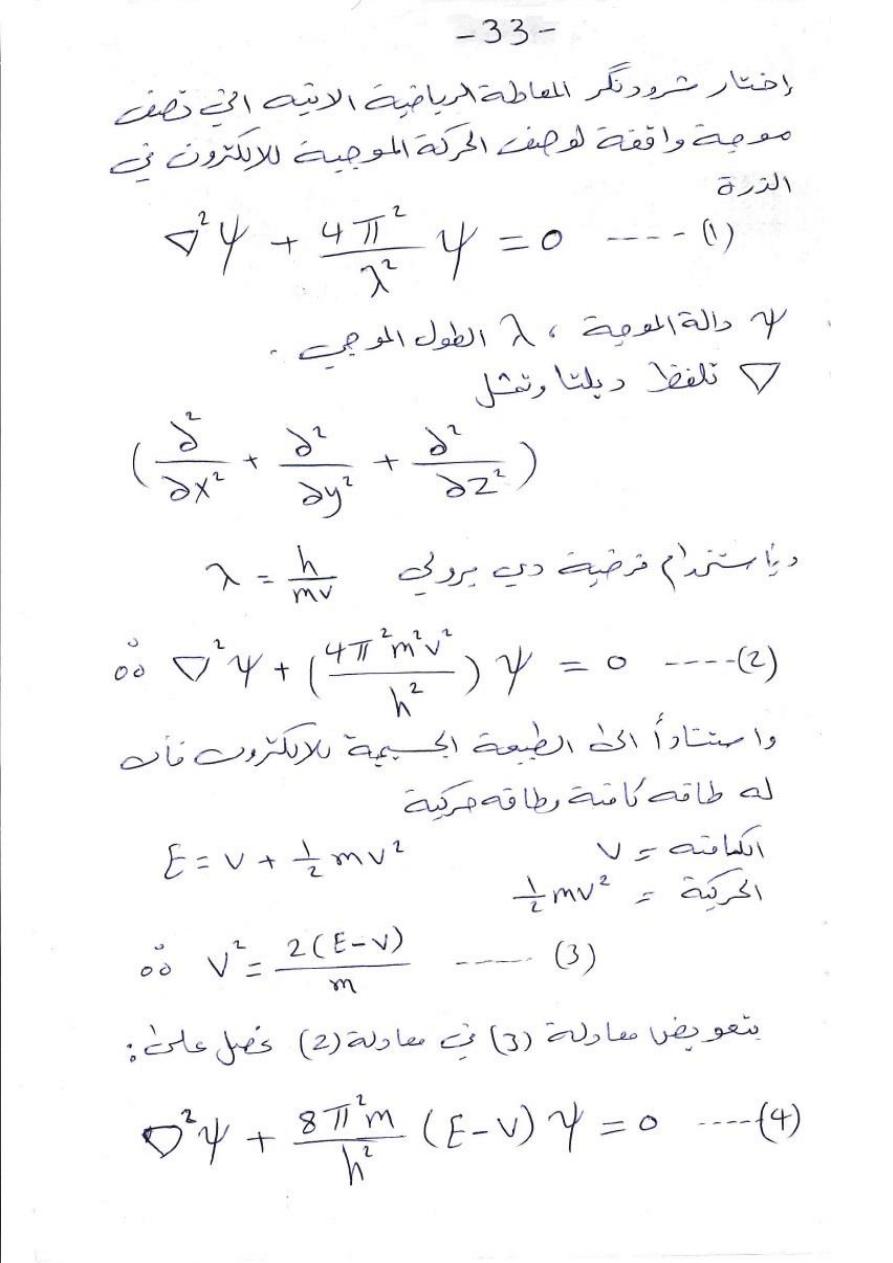 -33-
إختار شرودنگر المعادلة الرياضية الاتيه التي تصف
موجة واقفة لوصف الحركة الموجية للالكترون في
الذرة
∇²ψ + 4π²/λ² ψ = 0 ---- (1)
ψ دالة الموجة ، λ الطول الموجي .
∇ تلفظ ديلتا وتمثل
(∂²/∂x² + ∂²/∂y² + ∂²/∂z²)
وبأستخدام فرضية دي برولي λ = h/mv
∴ ∇²ψ + (4π²m²v²/h²) ψ = 0 ----(2)
واستناداً الى الطبيعة الجسيمية للالكترون فأن
له طاقه كامنة وطاقه حركية
الكامنه = V E = V + ½ mv²
الحركية = ½ mv²
∴ V² = 2(E-V)/m ----- (3)
بتعويض معادلة (3) في معادلة (2) نحصل على:
∇²ψ + 8π²m/h² (E-V) ψ = 0 ----(4)